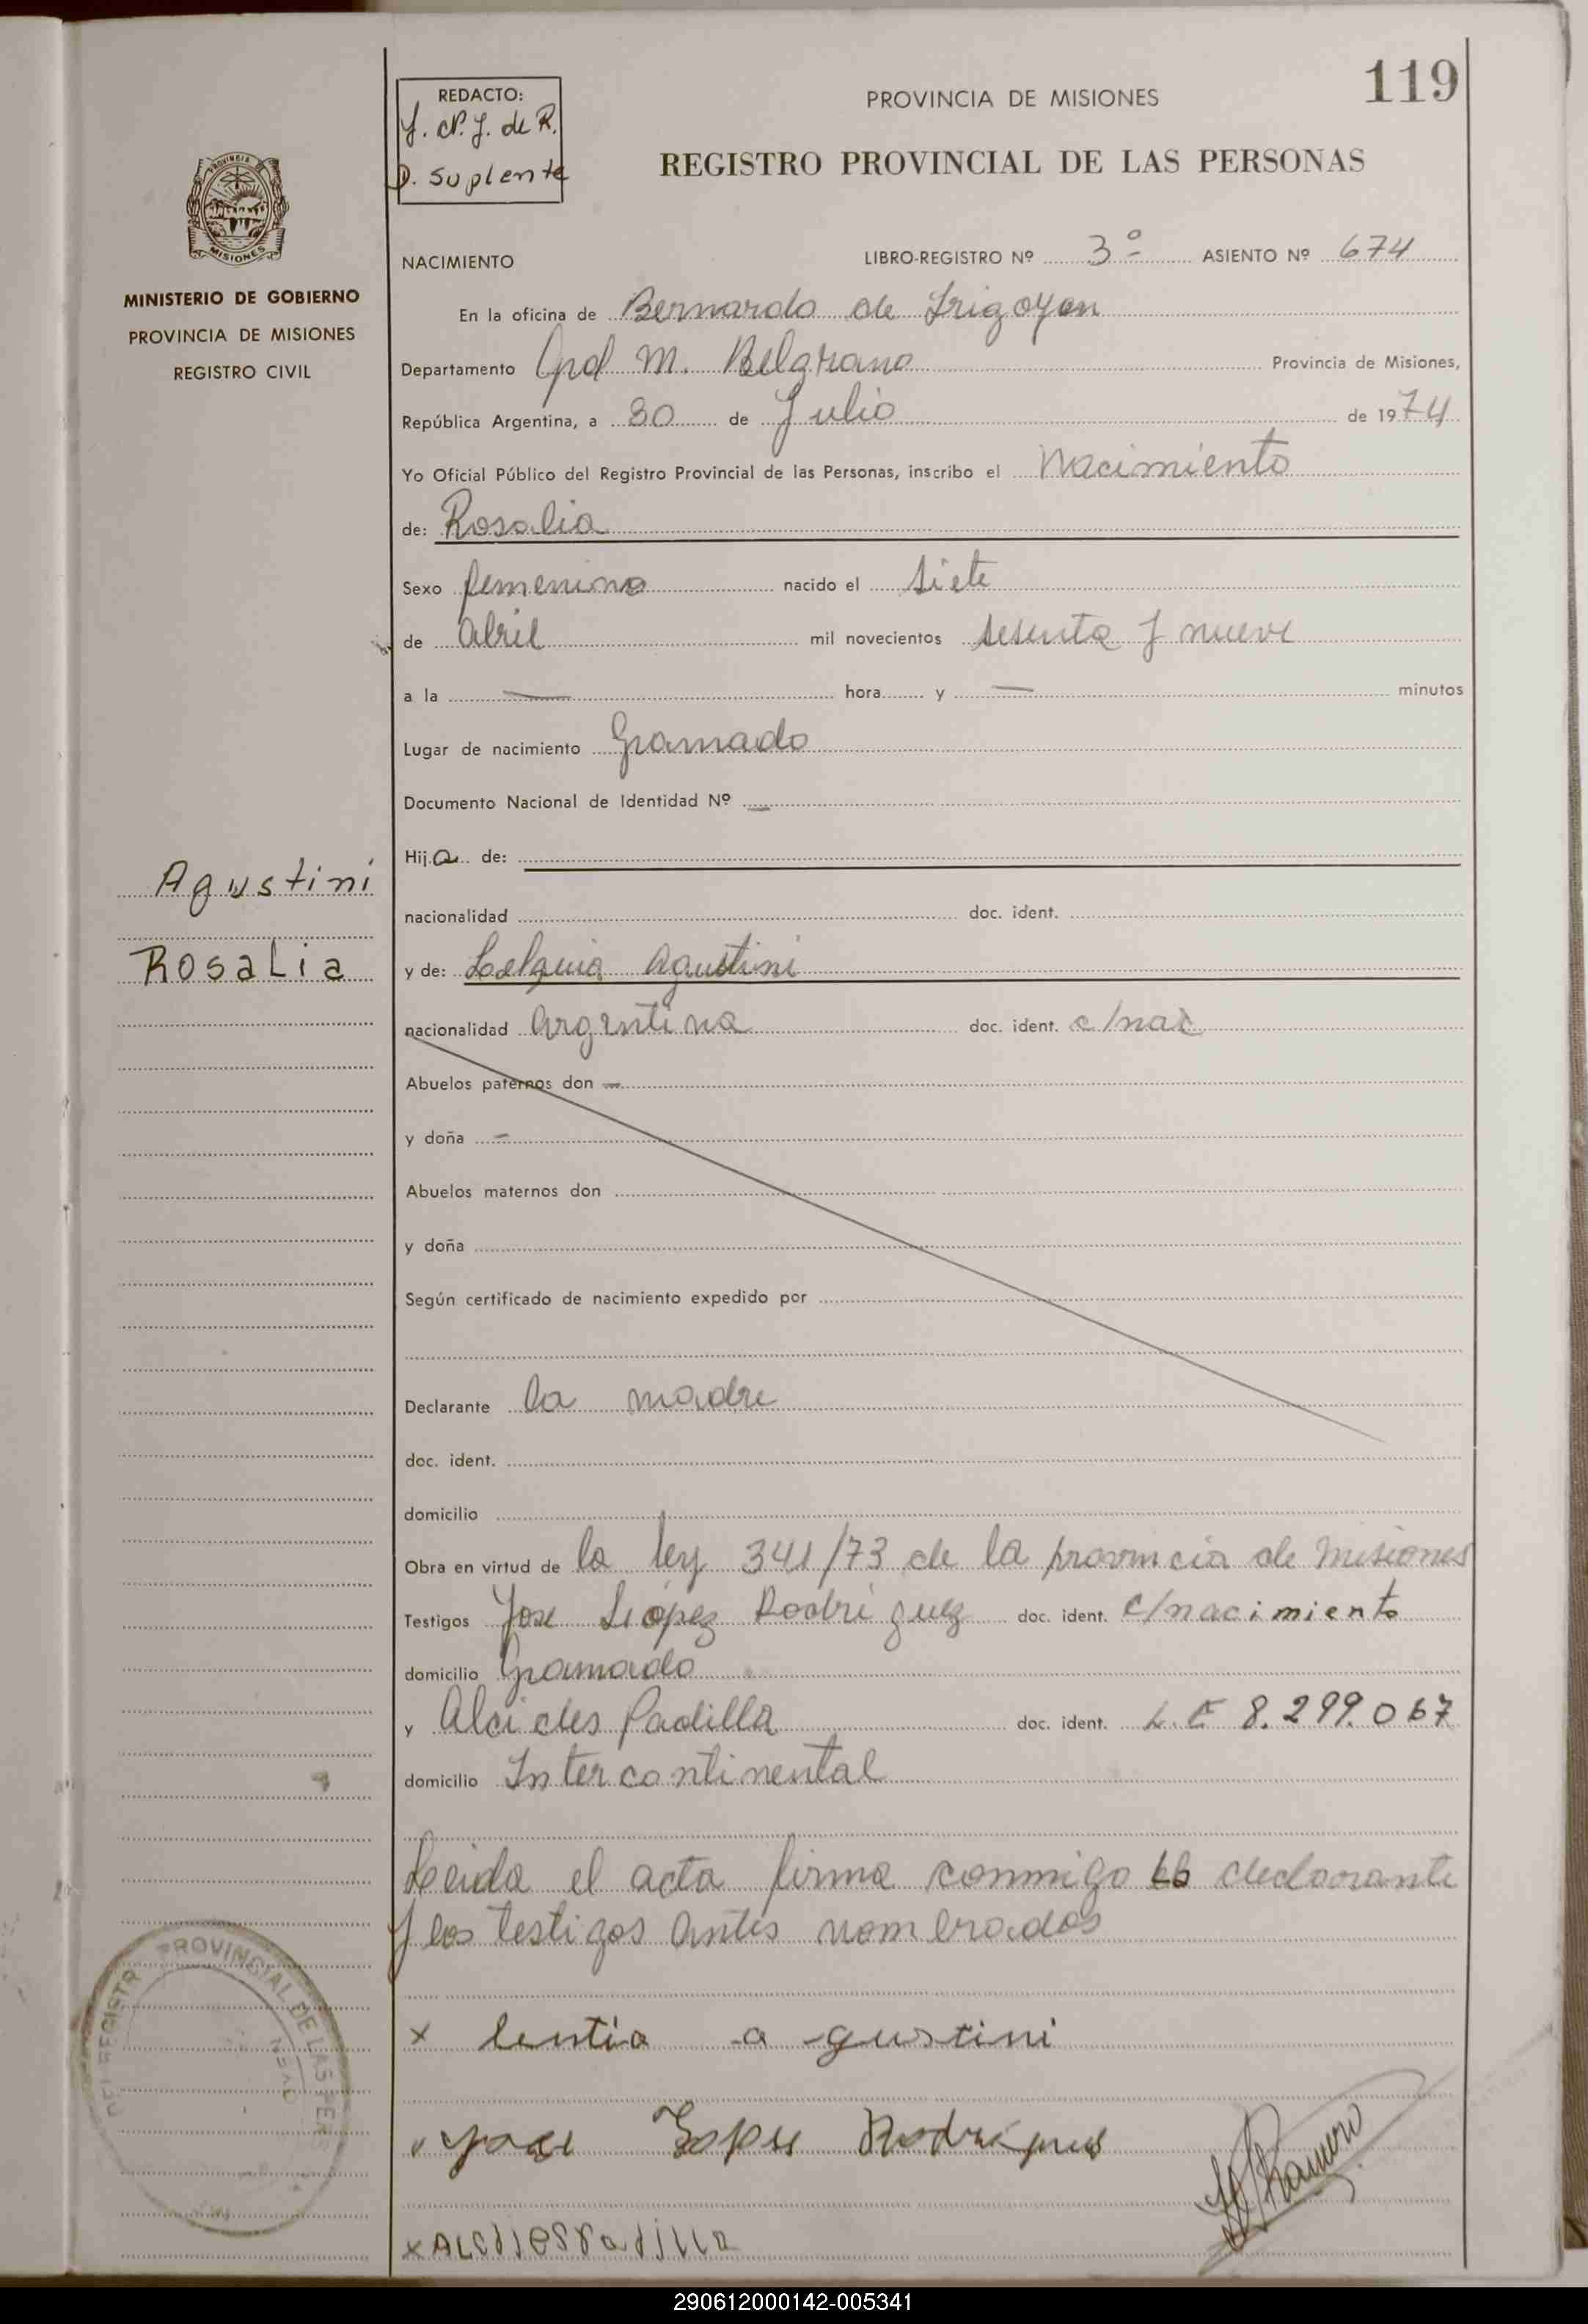 119
REDACTO:
J. N. J. de R.
D. Suplente
PROVINCIA DE MISIONES
REGISTRO PROVINCIAL DE LAS PERSONAS
PROVINCIA
MISIONES
MINISTERIO DE GOBIERNO
PROVINCIA DE MISIONES
REGISTRO CIVIL
NACIMIENTO LIBRO-REGISTRO Nº 3º ASIENTO Nº 674
En la oficina de Bernardo de Irigoyen
Departamento Gral M. Belgrano Provincia de Misiones,
República Argentina, a 30 de Julio de 1974
Yo Oficial Público del Registro Provincial de las Personas, inscribo el Nacimiento
de: Rosalia
Sexo femenino nacido el siete
de abril mil novecientos sesenta y nueve
a la — hora y — minutos
Lugar de nacimiento Gramado
Documento Nacional de Identidad Nº —
Hija de:
nacionalidad doc. ident.
Agustini
Rosalia
y de: Agustini
nacionalidad argentina doc. ident. c/nac
Abuelos paternos don —
y doña —
Abuelos maternos don
y doña
Según certificado de nacimiento expedido por
Declarante la madre
doc. ident.
domicilio
Obra en virtud de la ley 341/73 de la provincia de Misiones
Testigos Jose Lopez Rodriguez doc. ident. c/nacimiento
domicilio Gramado
y Alcides Padilla doc. ident. L.E 8.299.067
domicilio Intercontinental
Leida el acta firma conmigo la declarante
y los testigos antes nombrados
PROVINCIAL DE LAS PERS
x lentia a gustini
Jose Lopes Rodrigues
Ramero
x ALcdies Padilla
290612000142-005341